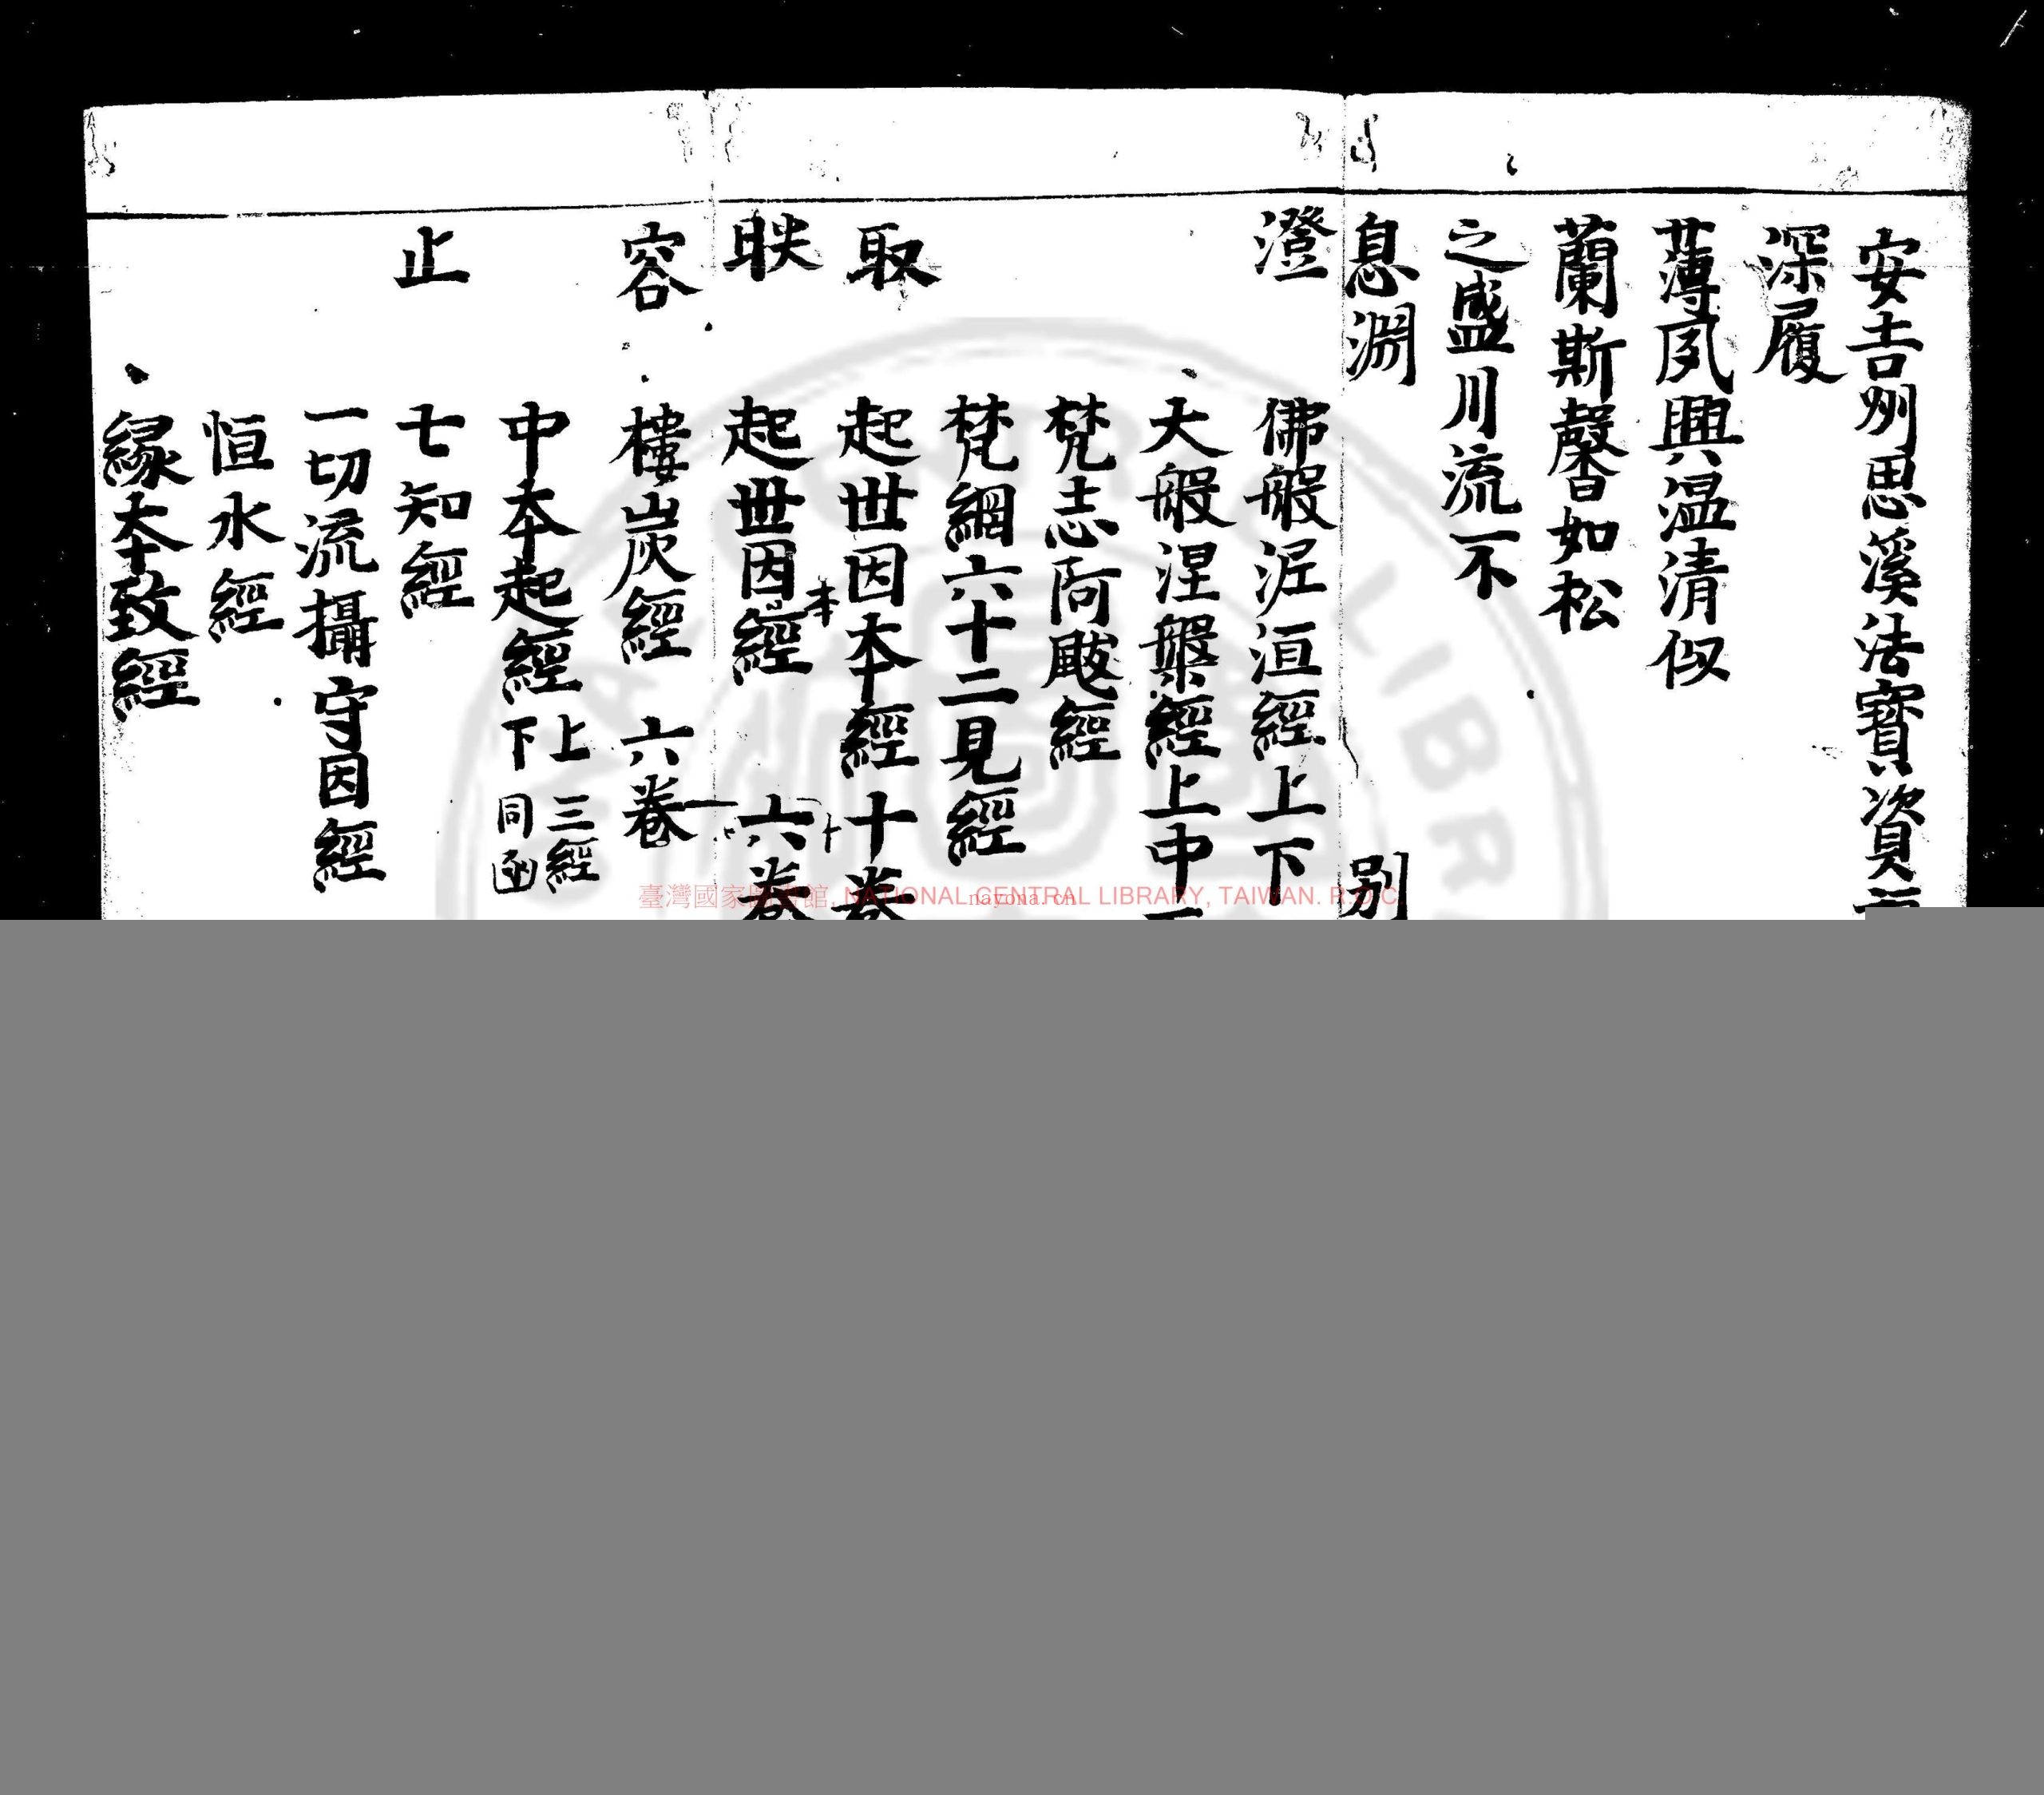 安吉州思溪法寶資
深履
薄夙興温清似
蘭斯馨如松
之盛川流不
息淵 别
澄 佛般泥洹經上下
大般涅槃經上中
梵志阿颰經
梵網六十二見經
取 起世因本經 十卷
映 起世因本經 六卷
容 樓炭經 六卷
中本起經上下 三經同函
止 七知經
一切流攝守因經
恒水經
緣本致經
臺灣國家圖書館, NATIONAL CENTRAL LIBRARY, TAIWAN. R.O.C.
nayona.cn